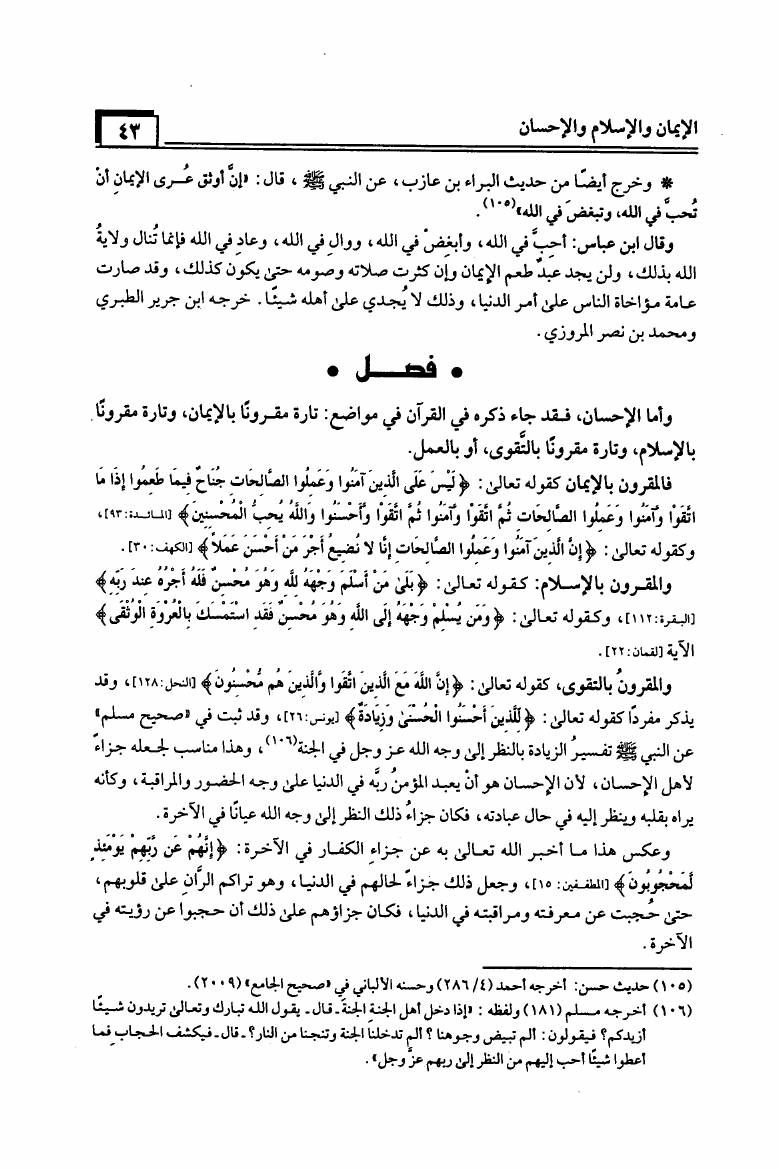 الإيمان والإسلام والإحسان
٤٣
* وخرج أيضًا من حديث البراء بن عازب، عن النبي ﷺ، قال: «إنَّ أوثق عُـرى الإيمانِ أنْ
تُحبَّ في الله، وتبغضَ في الله»(١٠٥).
وقال ابن عباس: أحِبَّ في الله، وأبغِضْ في الله، ووالِ في الله، وعادِ في الله فإنما تُنال ولايةُ
الله بذلك، ولن يجد عبدٌ طعم الإيمان وإن كثرت صلاته وصومه حتىٰ يكون كذلك، وقد صارت
عـامة مـؤاخاة الناس علىٰ أمـر الدنيا، وذلك لا يُجـدي علىٰ أهله شـيئًـا. خرجـه ابن جرير الطبري
ومحمد بن نصر المروزي.
• فصــــل •
وأما الإحسان، فـقد جاء ذكره في القرآن في مواضع: تارة مقـرونًا بالإيمان، وتارة مقرونًا
بالإسلام، وتارة مقرونًا بالتَّقوى، أو بالعمل.
فالمقرون بالإيمان كقوله تعالىٰ: ﴿لَيْسَ عَلَى الَّذِينَ آمَنُوا وَعَمِلُوا الصَّالِحَاتِ جُنَاحٌ فِيمَا طَعِمُوا إِذَا مَا
اتَّقَوْا وَآمَنُوا وَعَمِلُوا الصَّالِحَاتِ ثُمَّ اتَّقَوْا وَآمَنُوا ثُمَّ اتَّقَوْا وَأَحْسَنُوا وَاللَّهُ يُحِبُّ الْمُحْسِنِينَ﴾ [المـائـدة:٩٣]،
وكقوله تعالىٰ: ﴿إِنَّ الَّذِينَ آمَنُوا وَعَمِلُوا الصَّالِحَاتِ إِنَّا لا نُضِيعُ أَجْرَ مَنْ أَحْسَنَ عَمَلاً﴾ [الكهف:٣٠].
والمقـرون بالإسـلام: كـقـوله تعـالىٰ: ﴿بَلَىٰ مَنْ أَسْلَمَ وَجْهَهُ لِلَّهِ وَهُوَ مُحْسِنٌ فَلَهُ أَجْرُهُ عِندَ رَبِّهِ﴾
[البـقـرة:١١٢]، وكـقـوله تعـالىٰ: ﴿وَمَن يُسْلِمْ وَجْهَهُ إِلَى اللَّهِ وَهُوَ مُحْسِنٌ فَقَدِ اسْتَمْسَكَ بِالْعُرْوَةِ الْوُثْقَى﴾
الآية [لقمان:٢٢].
والمقرونُ بالتقوى، كقوله تعالىٰ: ﴿إِنَّ اللَّهَ مَعَ الَّذِينَ اتَّقَوا وَّالَّذِينَ هُم مُّحْسِنُونَ﴾ [النحل:١٢٨]، وقد
يذكر مفردًا كقوله تعالىٰ: ﴿لِّلَّذِينَ أَحْسَنُوا الْحُسْنَىٰ وَزِيَادَةٌ﴾ [يونس:٢٦]، وقد ثبت في «صحيح مسلم»
عن النبي ﷺ تفسيرُ الزيادة بالنظر إلىٰ وجه الله عـز وجل في الجنة(١٠٦)، وهذا مناسب لجـعله جـزاءً
لأهل الإحسان، لأن الإحسان هو أنْ يعبـد المؤمنُ ربَّه في الدنيا علىٰ وجـه الحضـور والمراقبـة، وكأنه
يراه بقلبه وينظر إليه في حال عبادته، فكان جزاءُ ذلك النظر إلىٰ وجه الله عيانًا في الآخرة.
وعكس هذا مـا أخبـر الله تعـالىٰ به عن جـزاءِ الكفـار في الآخـرة: ﴿إِنَّهُمْ عَن رَّبِّهِمْ يَوْمَئِذٍ
لَّمَحْجُوبُونَ﴾ [المطفـفين: ١٥]، وجعل ذلك جـزاءً لحالهم في الدنيـا، وهو تراكم الرَّانِ علىٰ قلوبهم،
حتىٰ حُـجبت عن مـعرفتـه ومـراقبتـه في الدنيـا، فكـان جزاؤهم علىٰ ذلك أن حـجبـوا عن رؤيتـه في
الآخرة.
(١٠٥) حديث حسن: أخرجه أحمد (٤/ ٢٨٦) وحسنه الألباني في «صحيح الجامع» (٢٠٠٩).
(١٠٦) أخرجه مسلم (١٨١) ولفظه: «إذا دخل أهل الجنةِ الجنةَ ـ قال ـ يقول الله تبارك وتعالىٰ تريدون شـيئًـا
أزيدكم؟ فيقولون: ألم تبيض وجوهنا؟ ألم تدخلنا الجنة وتنجنا من النار؟ ـ قال ـ فيكشف الحجاب فما
أعطوا شيئًا أحب إليهم من النظر إلىٰ ربهم عزَّ وجل».